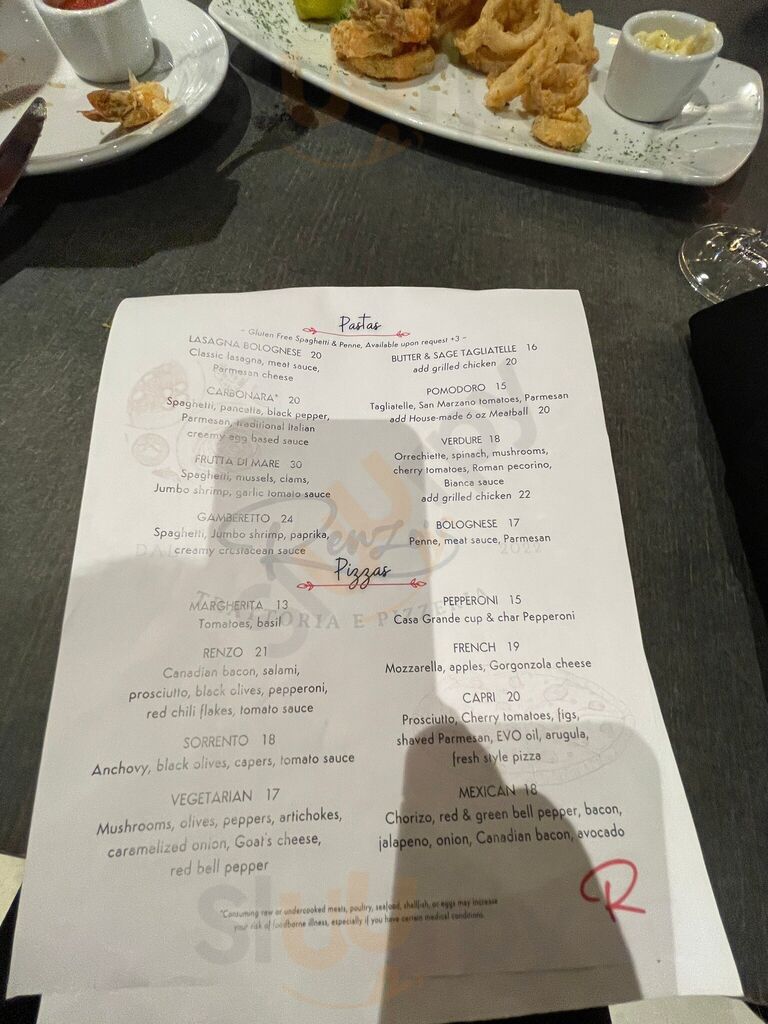 Pastas
~ Gluten Free Spaghetti & Penne, Available upon request +3 ~
LASAGNA BOLOGNESE 20
Classic lasagna, meat sauce,
Parmesan cheese
CARBONARA* 20
Spaghetti, pancetta, black pepper,
Parmesan, traditional Italian
creamy egg based sauce
FRUTTA DI MARE 30
Spaghetti, mussels, clams,
Jumbo shrimp, garlic tomato sauce
GAMBERETTO 24
Spaghetti, Jumbo shrimp, paprika,
creamy crustacean sauce
BUTTER & SAGE TAGLIATELLE 16
add grilled chicken 20
POMODORO 15
Tagliatelle, San Marzano tomatoes, Parmesan
add House-made 6 oz Meatball 20
VERDURE 18
Orrechiette, spinach, mushrooms,
cherry tomatoes, Roman pecorino,
Bianca sauce
add grilled chicken 22
BOLOGNESE 17
Penne, meat sauce, Parmesan
Renzo
2022
TRATTORIA E PIZZERIA
Pizzas
MARGHERITA 13
Tomatoes, basil
RENZO 21
Canadian bacon, salami,
prosciutto, black olives, pepperoni,
red chili flakes, tomato sauce
SORRENTO 18
Anchovy, black olives, capers, tomato sauce
VEGETARIAN 17
Mushrooms, olives, peppers, artichokes,
caramelized onion, Goat's cheese,
red bell pepper
PEPPERONI 15
Casa Grande cup & char Pepperoni
FRENCH 19
Mozzarella, apples, Gorgonzola cheese
CAPRI 20
Prosciutto, Cherry tomatoes, figs,
shaved Parmesan, EVO oil, arugula,
fresh style pizza
MEXICAN 18
Chorizo, red & green bell pepper, bacon,
jalapeno, onion, Canadian bacon, avocado
R
*Consuming raw or undercooked meats, poultry, seafood, shellfish, or eggs may increase
your risk of foodborne illness, especially if you have certain medical conditions.